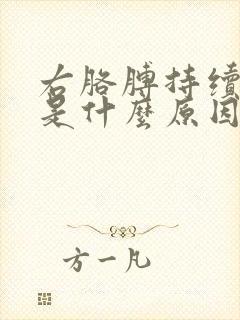 右胳膊持续
是什麼原因
方一凡